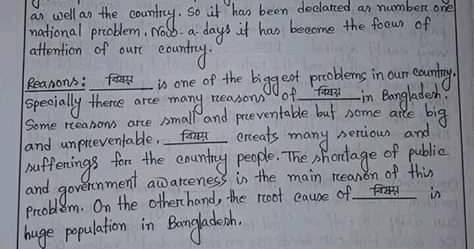 as well as the country. So it has been declared as number one
national problem. Now-a-days it has become the focus of
attention of our country.
Reasons: বিষয় is one of the biggest problems in our country.
Specially there are many reasons of বিষয় in Bangladesh.
Some reasons are small and preventable but some are big
and unpreventable. বিষয় creats many serious and
sufferings for the country people. The shortage of public
and government awareness is the main reason of this
problem. On the otherhand, the root cause of বিষয় is
huge population in Bangladesh.